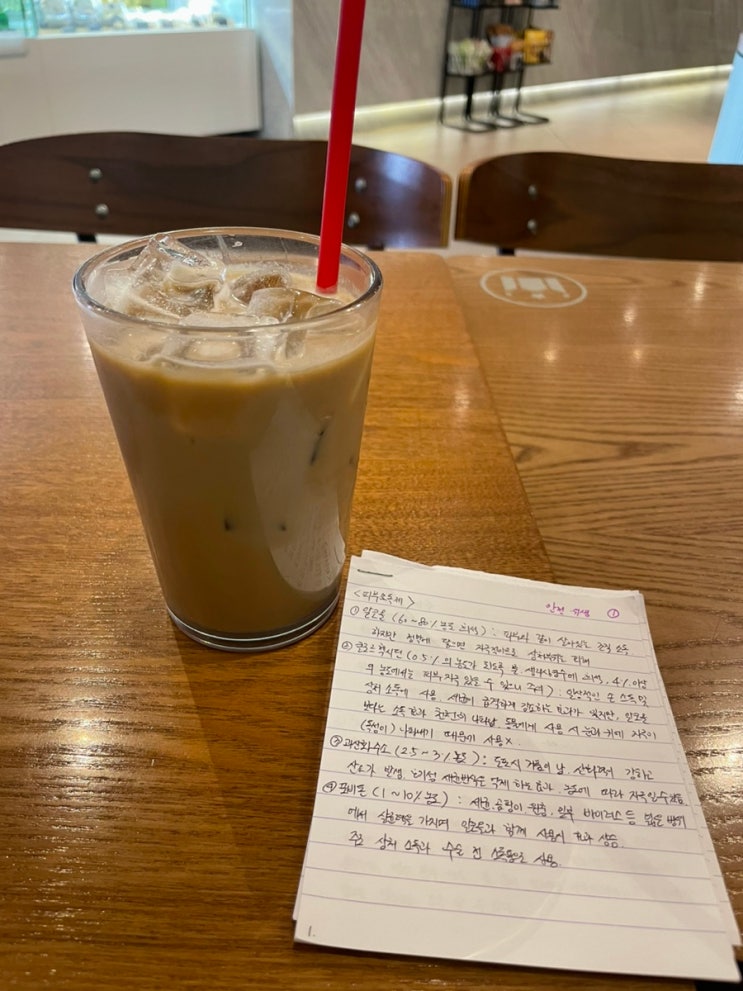 안전 위생 ①
<피부소독제>
① 알코올 (60~80% 농도 희석) : 피부의 깊이 살아있는 균 소독
하지만 점막에 닿으면 자극적이므로 상처부위는 피해
② 클로르헥시딘 (0.5%의 농도가 되도록 물, 생리식염수에 희석, 4% 이상
의 농도에서는 피부 자극 있을 수 있으니 주의) : 일상적인 손 소독 및
상처 소독에 사용. 세균이 급격하게 감소하는 효과가 있지만, 알코올
보다는 소독 효과 천천히 나타남. 동물에게 사용 시 눈과 귀에 자극이
(독성이) 나타나기 때문에 사용 X.
③ 과산화수소 (2.5~3% 농도) : 도포시 거품이 남. 산화력이 강하고
산소가 발생, 호기성 세균번식을 억제 하는 효과. 농도에 따라 자극일 수 있음
④ 포비돈 (1~10% 농도) : 세균, 곰팡이, 원충, 일부 바이러스 등 넓은 범위
에서 살균력을 가지며 알코올과 함께 사용시 효과 상승.
주로 상처 소독과 수술 전 소독용으로 사용.
1.